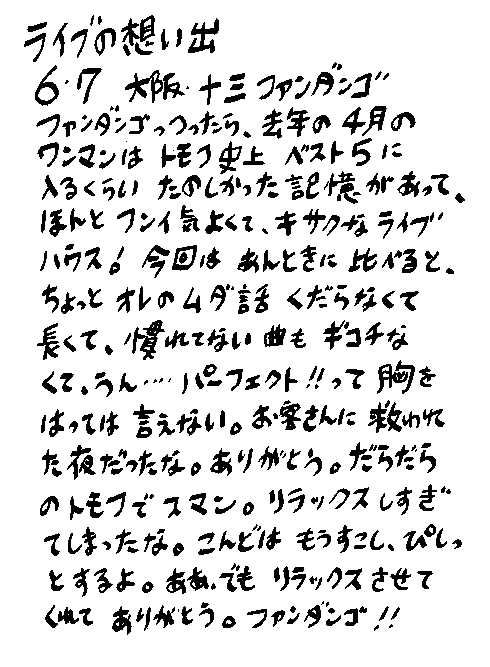 ライブの想い出
6・7 大阪・十三ファンダンゴ
ファンダンゴっつったら、去年の4月の
ワンマンは トモフ史上 ベスト5に
入るくらい たのしかった記憶があって、
ほんと フンイ気よくて、キサクなライブ
ハウス! 今回は あんときに 比べると、
ちょっと オレのムダ話 くだらなくて
長くて、慣れてない 曲も ギコチな
くて、うん…. パーフェクト!!って 胸を
はっては 言えない。お客さんに 救われ
た夜だったな。ありがとう。だらだら
のトモフで スマン。リラックスしすぎ
てしまったな。こんどは もうすこし、ぴしっ
とするよ。ああ、でも リラックスさせて
くれて ありがとう。ファンダンゴ!!